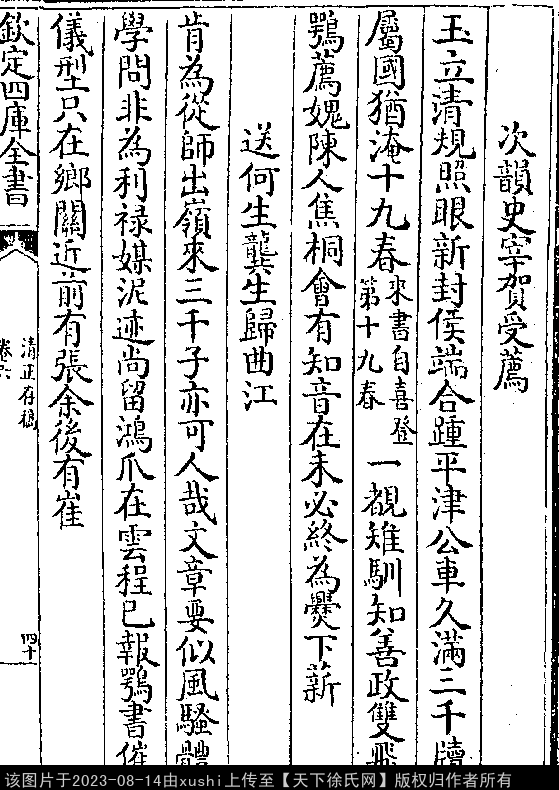 次韻史宰賀受薦
玉立清規照眼新封侯端合踵平津公車久滿三千牘
屬國猶淹十九春來書自喜登第十九春一覩雉馴知善政雙飛
鶚薦媿陳人焦桐會有知音在未必終為爨下薪
送何生龔生歸曲江
肯為從師出嶺來三千子亦可人哉文章要似風騷體
學問非為利祿媒泥迹尚留鴻爪在雲程已報鶚書催
儀型只在鄉關近前有張余後有崔
欽定四庫全書
清正存稿
卷六
四十
该图片于2023-08-14由xushi上传至【天下徐氏网】版权归作者所有